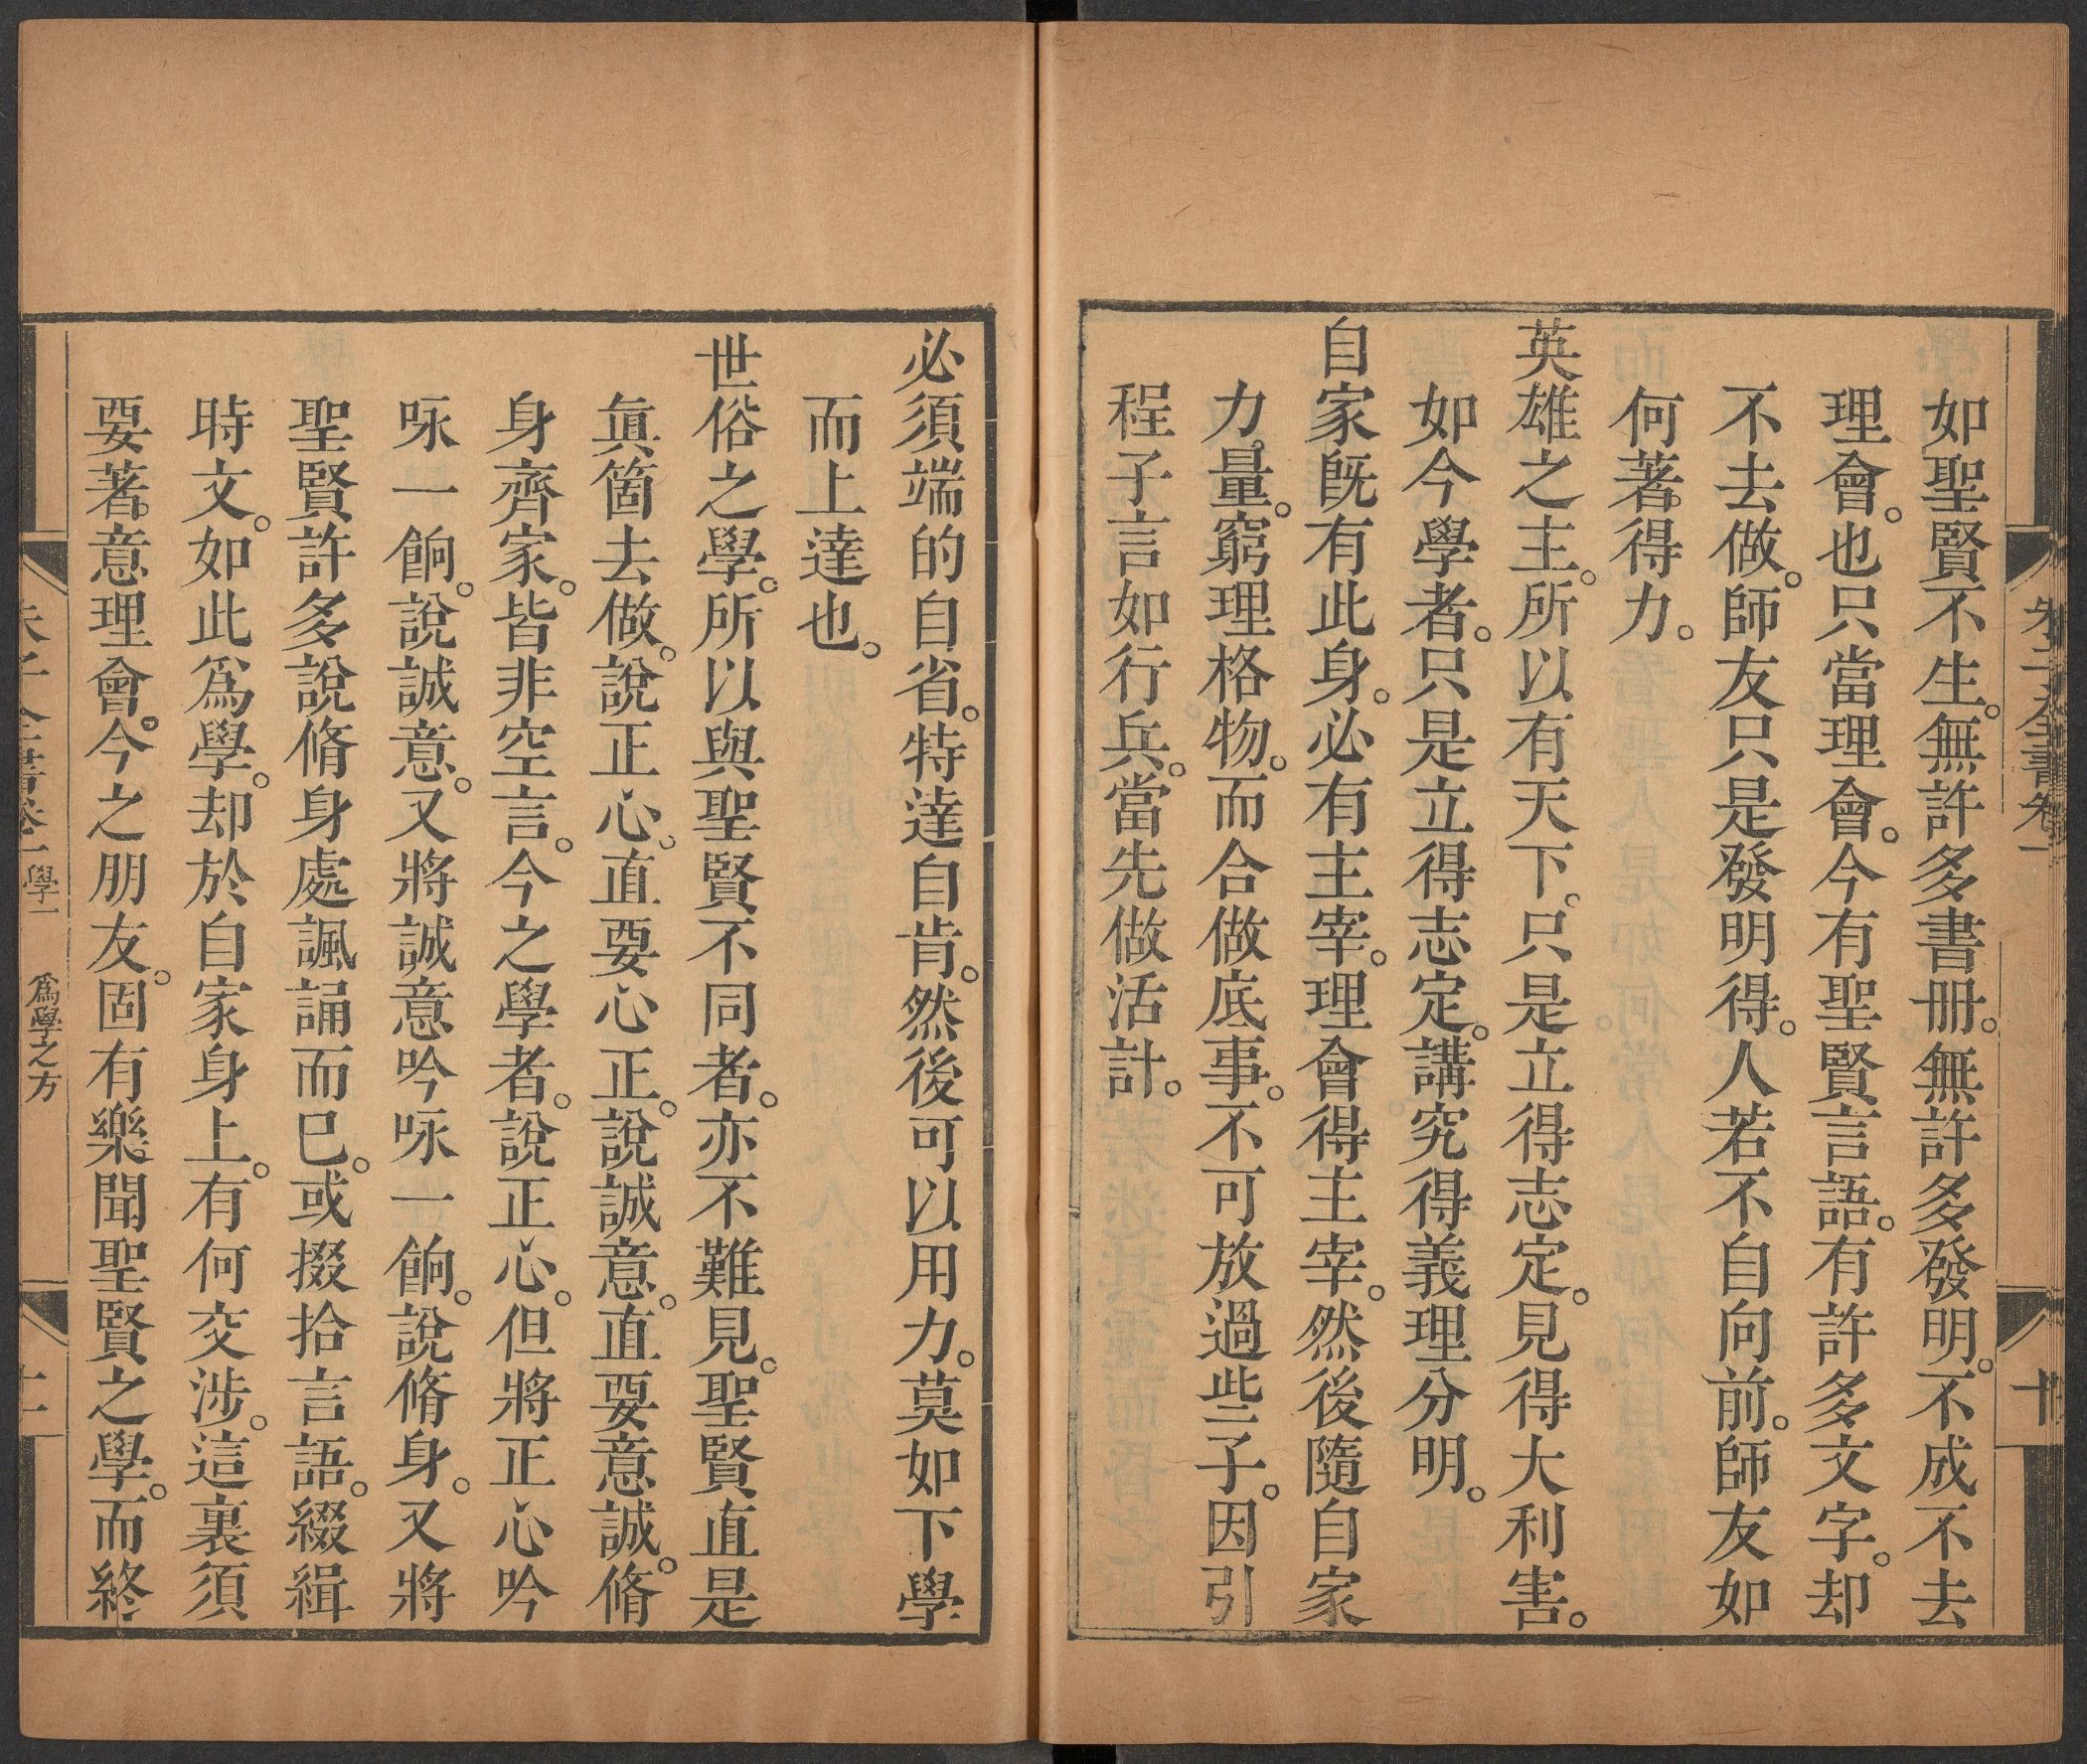 朱子全書卷一
十
如聖賢不生。無許多書冊。無許多發明。不成不去
理會。也只當理會。今有聖賢言語。有許多文字。却
不去做。師友只是發明得。人若不自向前。師友如
何著得力。
英雄之主。所以有天下。只是立得志定。見得大利害。
如今學者。只是立得志定。講究得義理分明。
自家旣有此身。必有主宰。理會得主宰。然後隨自家
力量。窮理格物。而合做底事。不可放過些子。因引
程子言如行兵。當先做活計。
必須端的自省。特達自肯。然後可以用力。莫如下學
而上達也。
世俗之學。所以與聖賢不同者。亦不難見。聖賢直是
眞箇去做。說正心。直要心正。說誠意。直要意誠。脩
身齊家。皆非空言。今之學者。說正心。但將正心吟
咏一餉。說誠意。又將誠意吟咏一餉。說脩身。又將
聖賢許多說脩身處諷誦而已。或掇拾言語。綴緝
時文。如此爲學。却於自家身上。有何交涉。這裏須
要著意理會。今之朋友。固有樂聞聖賢之學。而終
朱子全書卷一 學一 爲學之方
十一